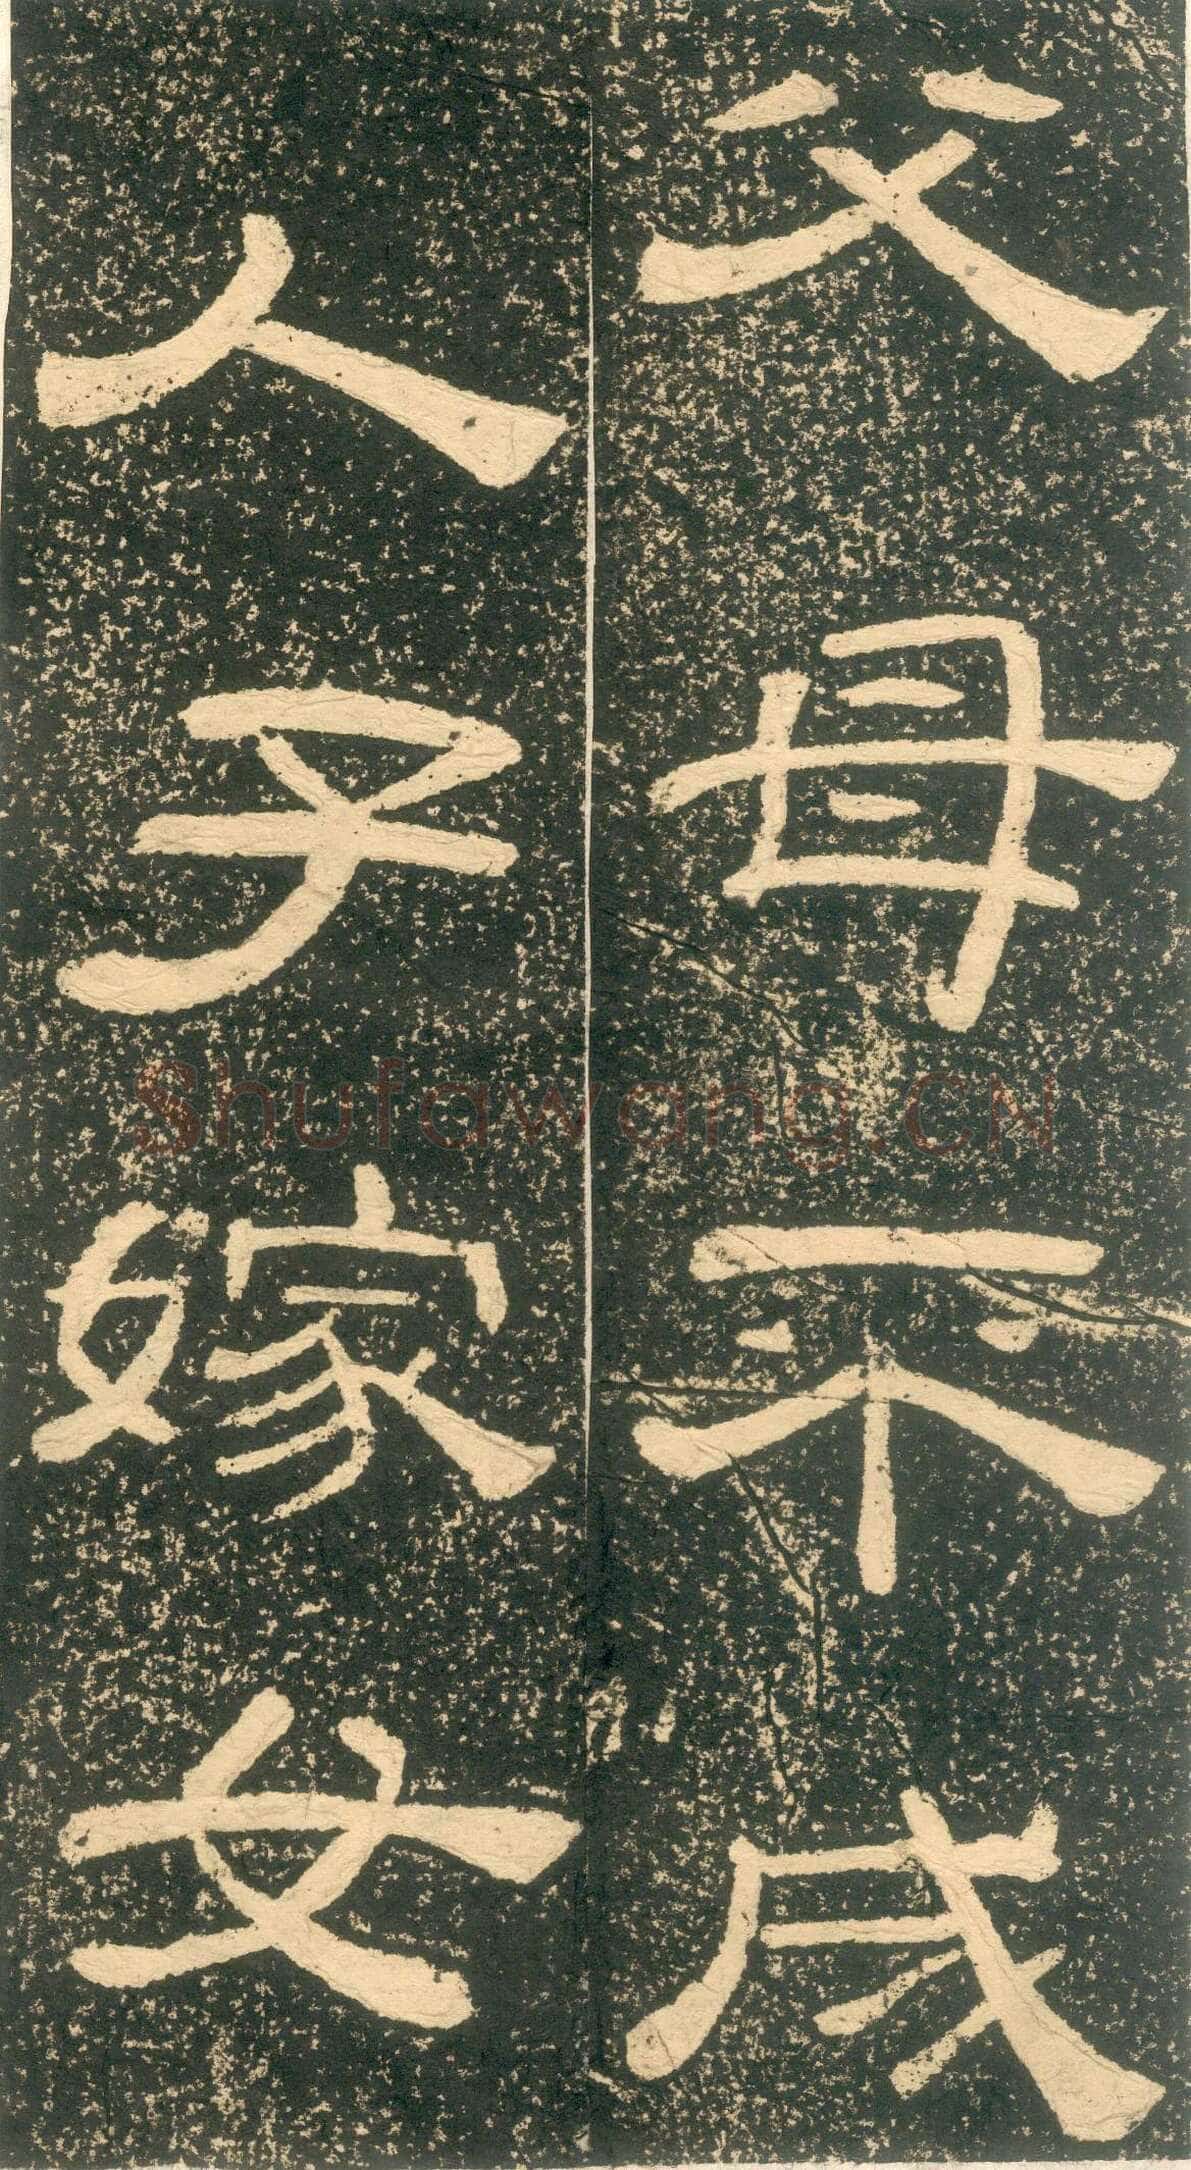 父母
人子嫁女
Shufawang.CN